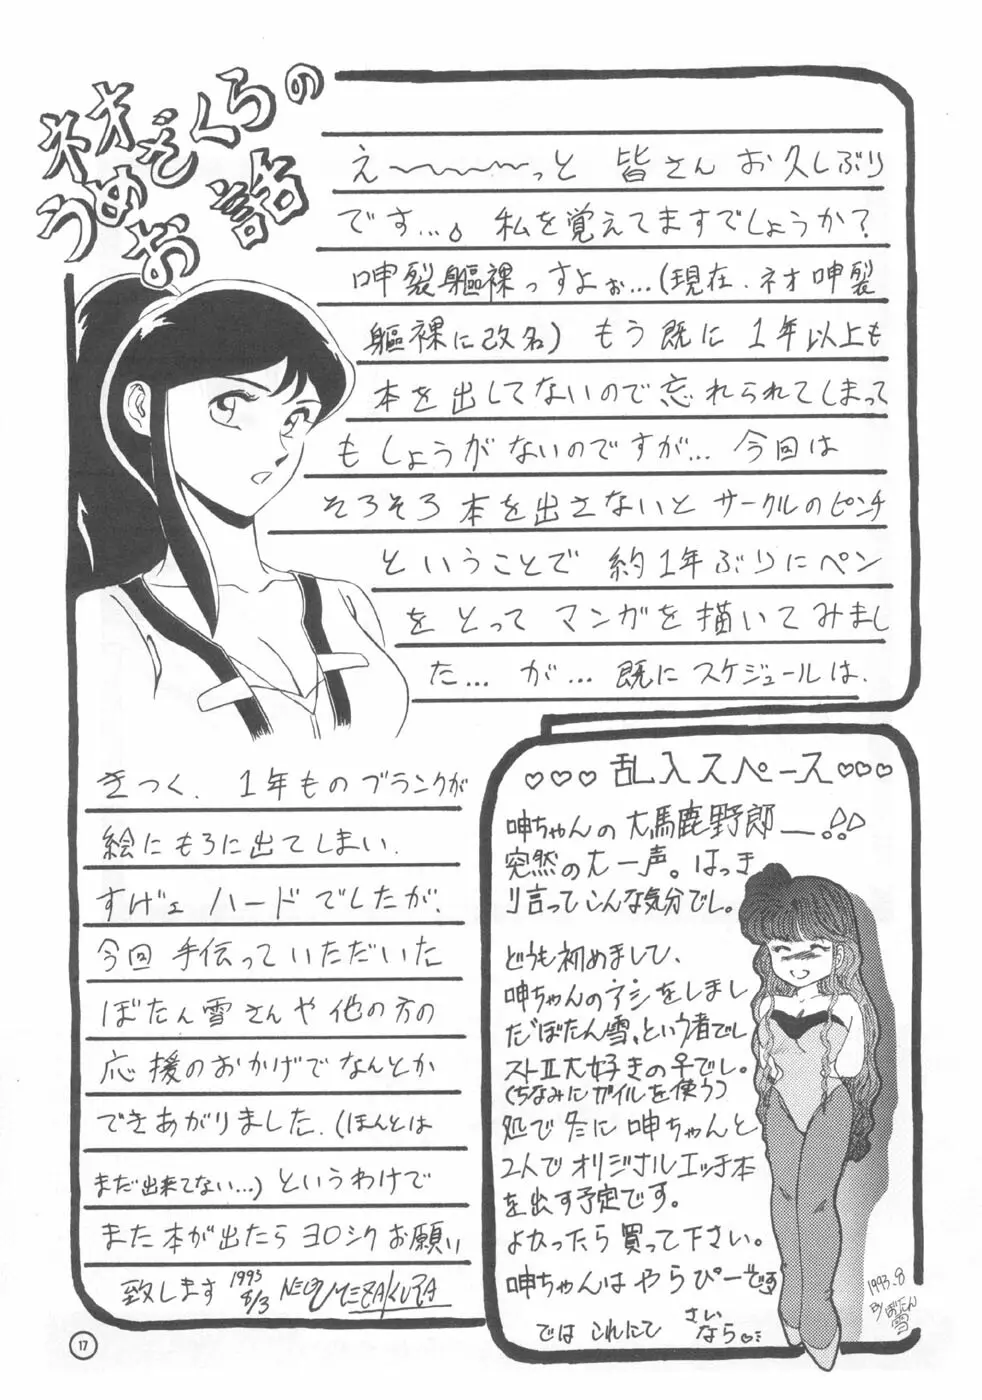 ネオ
うめぞくらの
お話
え〜〜〜っと 皆さん お久しぶり
です…。私を覚えてますでしょうか?
呻裂躯裸っすよぉ…(現在、ネオ呻裂
躯裸に改名) もう既に 1年以上も
本を出してないので忘れられてしまって
もしょうがないのですが… 今回は
そろそろ本を出さないと サークルのピンチ
ということで 約1年ぶりにペン
をとって マンガを描いてみまし
た… が… 既にスケジュールは、
きつく、1年ものブランクが
絵にもろに出てしまい、
すげェ ハードでしたが、
今回 手伝っていただいた
ぼたん雪さんや他の方の
応援のおかげでなんとか
できあがりました。(ほんとは
まだ出来てない…) というわけで
また本が出たら ヨロシクお願い
致します 1993 8/3
17
♡♡♡ 乱入スペース ♡♡♡
呻ちゃんの大馬鹿野郎—!!
突然の大一声。はっき
り言ってこんな気分でし。
どうも初めまして、
呻ちゃんのアシをしまし
た"ぼたん雪、という者でし
ストⅡ大好きの子でし。
(ちなみにガイルを使う)
処で冬に 呻ちゃんと
2人でオリジナルエッチ本
を出す予定です。
よかったら買って下さい。
呻ちゃんは やらぴーです
では これにて さい
なら♡…
1993.8
By ぼたん
雪